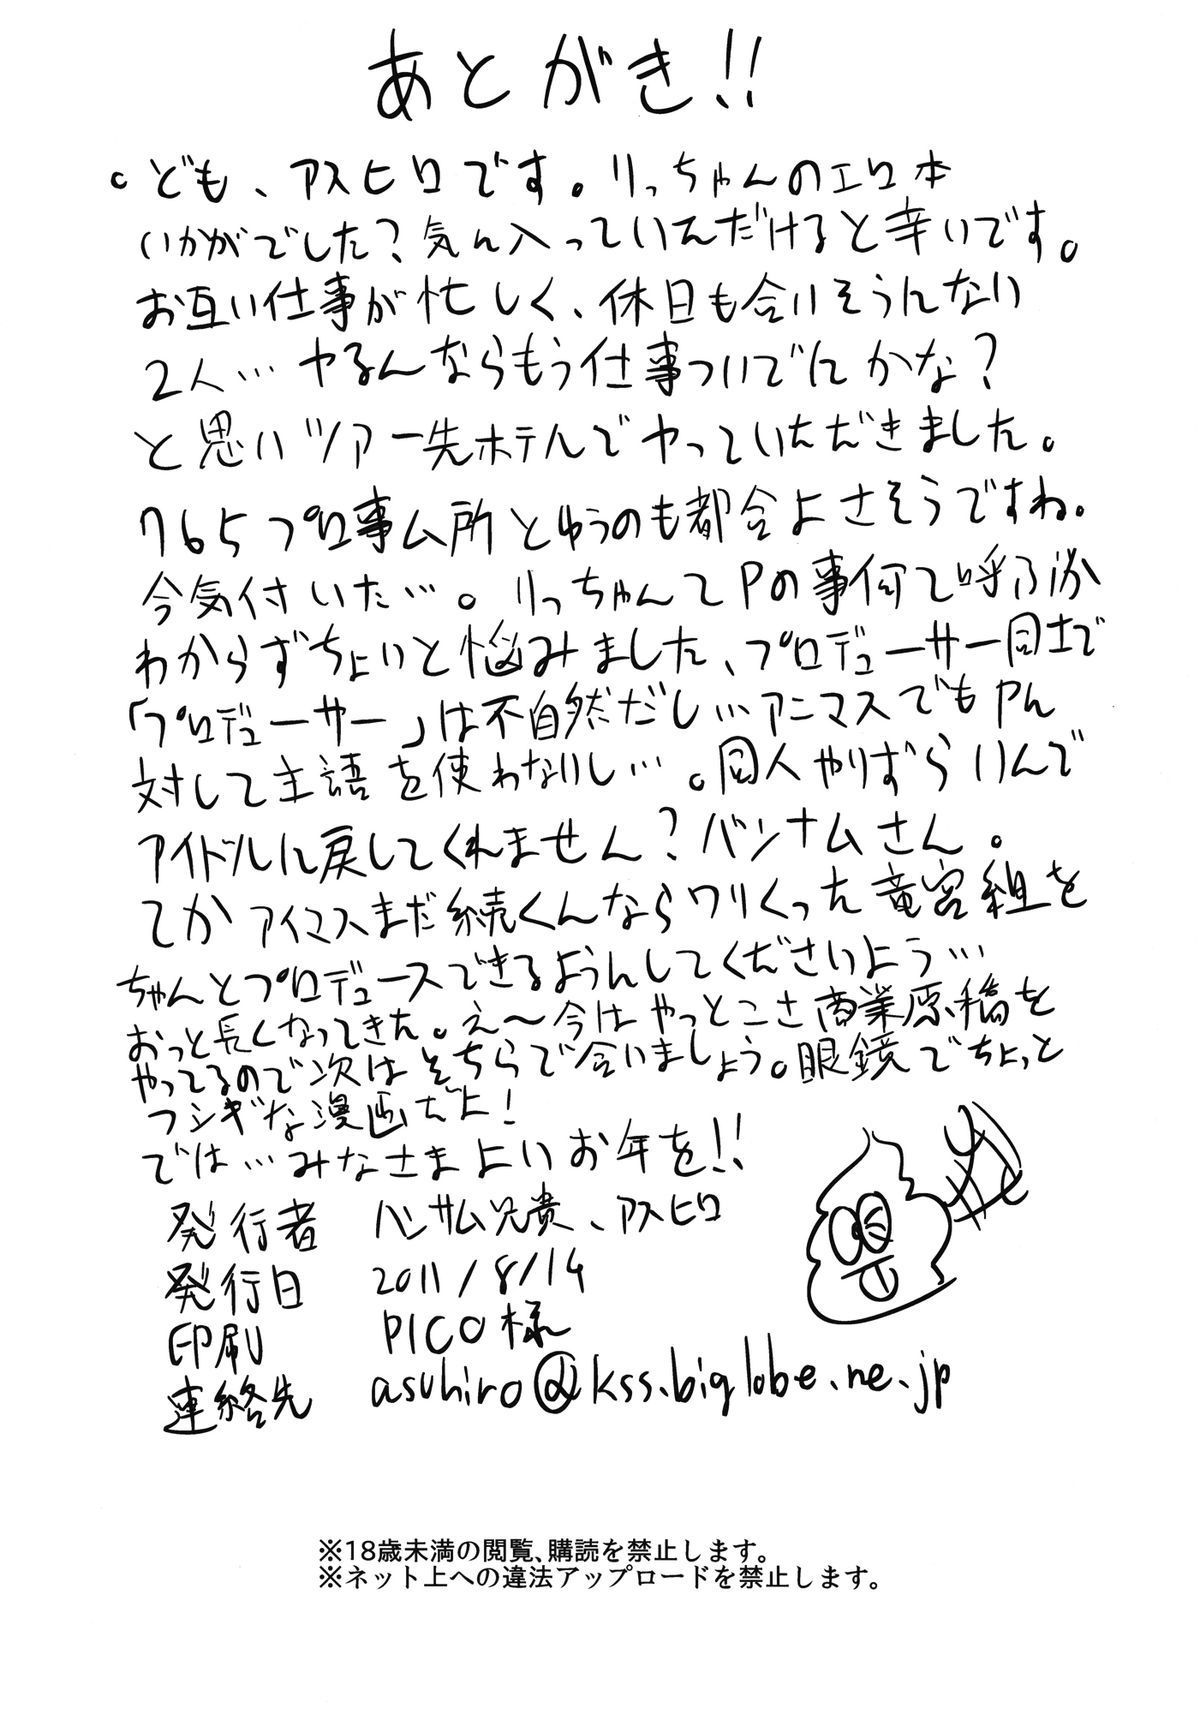 あとがき!!
。ども、アスヒロです。りっちゃんのエロ本
いかがでした?気に入っていただけると幸いです。
お互い仕事が忙しく、休日も合いそうにない
2人…ヤるんならもう仕事ついでにかな?
と思いツアー先ホテルでヤっていただきました。
765プロ事ム所とゆうのも都合よさそうですね。
今気付いた…。りっちゃんてPの事何て呼ぶか
わからずちょいと悩みました、プロデューサー同士で
「プロデューサー」は不自然だし…アニマスでもPに
対して主語を使わないし…。同人やりずらいんで
アイドルに戻してくれません?バンナムさん。
てかアイマスまだ続くんならワリくった竜宮組を
ちゃんとプロデュースできるようにしてくださいよう…
おっと長くなってきた。え〜今はやっとこさ商業原稿を
やってるので次はそちらで会いましょう。眼鏡でちょっと
フシギな漫画だよ!
では…みなさまよいお年を!!
発行者 ハンサム兄貴、アスヒロ
発行日 2011/8/14
印刷 PICO様
連絡先 asuhiro@kss.biglobe.ne.jp
※18歳未満の閲覧、購読を禁止します。
※ネット上への違法アップロードを禁止します。